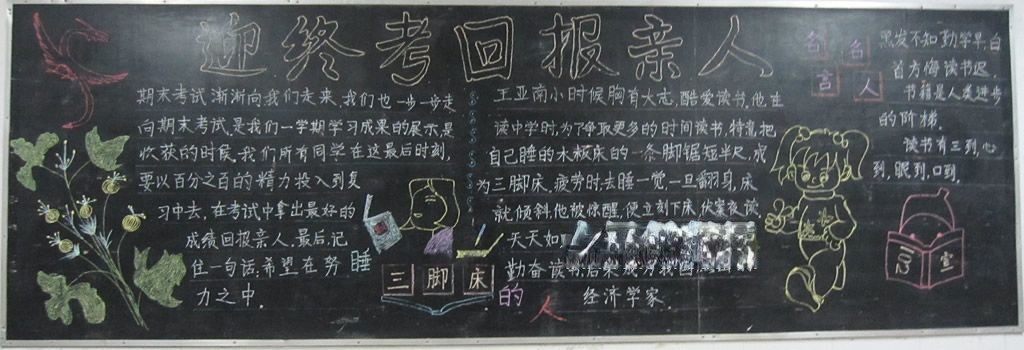 迎终考回报亲人
期末考试渐渐向我们走来,我们也一步一步走
向期末考试是我们一学期学习成果的展示是
收获的时候,我们所有同学在这最后时刻,
要以百分之百的精力投入到复
习中去,在考试中拿出最好的
成绩回报亲人,最后,记
住一句话:希望在努
力之中.
睡
三脚床
的人
王亚南小时候胸有大志,酷爱读书,他在
读中学时,为了争取更多的时间读书,特意把
自己睡的木板床的一条脚锯短半尺,成
为三脚床,疲劳时,去睡一觉,一旦翻身,床
就倾斜,他被惊醒,便立刻下床,伏案夜读,
天天如
勤奋读书,后来成为我国
经济学家.
名名
言人
黑发不知勤学早,白
首方悔读书迟.
书籍是人类进步
的阶梯.
读书有三到,心
到,眼到,口到.